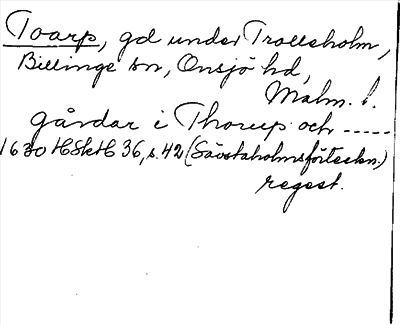 Toarp, gd under Trolleholm,
Billinge sn, Onsjö hd,
Malm. l.
gårdar i Thorup och -----
1630 HSkH 36, s. 42 (Säostaholmsförteckn.)
regest.